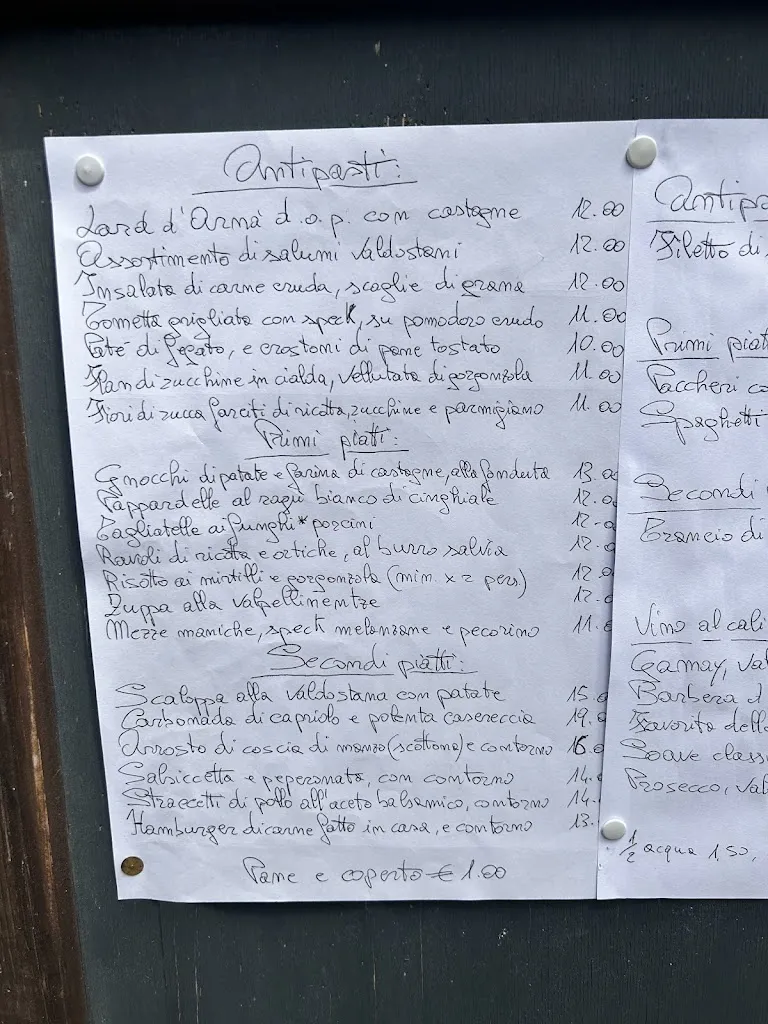 Antipasti:
Lard d'Arnad d.o.p. con castagne 12.00
Assortimento di salumi valdostani 12.00
Insalata di carne cruda, scaglie di grana 12.00
Tometta grigliata con speck, su pomodoro crudo 11.00
Paté di fegato, e crostoni di pane tostato 10.00
Flan di zucchine in cialda, vellutata di gorgonzola 11.00
Fiori di zucca farciti di ricotta, zucchine e parmigiano 11.00
Primi piatti:
Gnocchi di patate e farina di castagne, alla fonduta 13.0
Pappardelle al ragù bianco di cinghiale 12.0
Tagliatelle ai funghi* porcini 12.0
Ravioli di ricotta e ortiche, al burro salvia 12.0
Risotto ai mirtilli e gorgonzola (min. x 2 pers) 12.0
Zuppa alla valpellinentze 12.0
Mezze maniche, speck melanzane e pecorino 11.0
Secondi piatti:
Scaloppa alla valdostana con patate 15.0
Carbonada di capriolo e polenta casereccia 19.0
Arrosto di coscia di manzo (scottona) e contorno 16.0
Salsiccetta e peperonata, con contorno 14.0
Straccetti di pollo all'aceto balsamico, contorno 14.
Hamburger di carne fatto in casa, e contorno 13.
Pane e coperto € 1.00
Antipa
Filetto di
Primi piatt
Paccheri co
Spaghetti
Secondi
Trancio di
Vino al cali
Gamay, Val
Barbera d
Favorita delle
Soave class
Prosecco, Val
1/2 acqua 1,50,